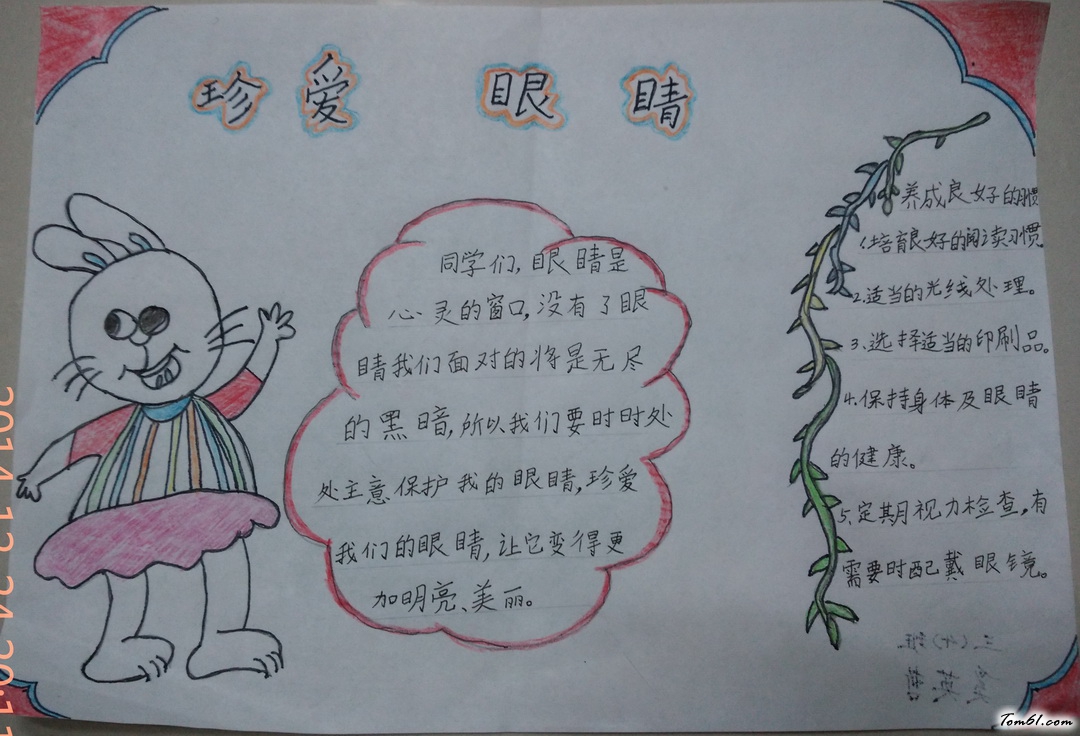 珍爱眼睛
同学们,眼睛是
心灵的窗口,没有了眼
睛我们面对的将是无尽
的黑暗,所以我们要时时处
处主意保护我的眼睛,珍爱
我们的眼睛,让它变得更
加明亮、美丽。
养成良好的习惯
1.培育良好的阅读习惯
2.适当的光线处理。
3.选择适当的印刷品。
4.保持身体及眼睛
的健康。
5.定期视力检查,有
需要时配戴眼镜。
Tom61.com